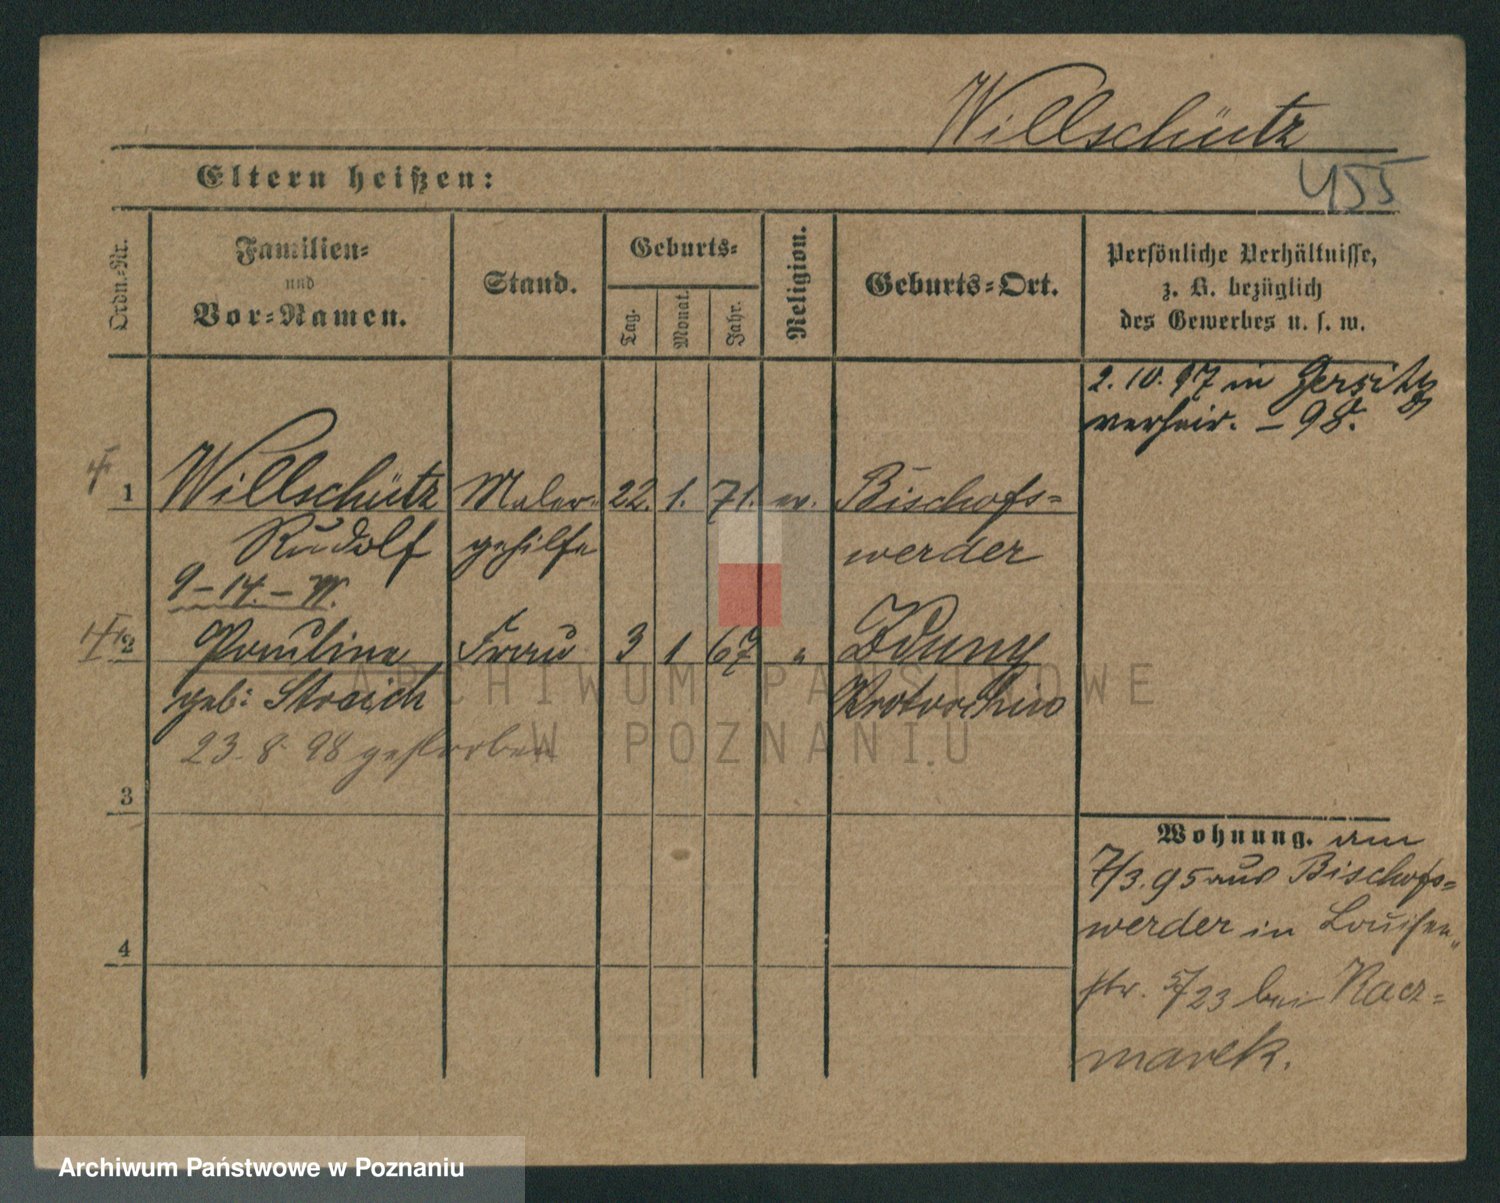 Willschütz
455
Eltern heißen:
Ordn.-Nr.
Familien-
und
Vor-Namen.
Stand.
Geburts-
Tag.
Monat.
Jahr.
Religion.
Geburts-Ort.
Persönliche Verhältnisse,
z. B. bezüglich
des Gewerbes u. s. w.
2. 10. 97 in Gersitz
verheir. – 98.
1 Willschütz Maler- 22. 1. 71. ev. Bischofs-
Rudolf gehilfe werder
9 – 14. –
2 Pauline Frau 3 1 67 " Zduny
geb: Streich Krotoschin
23. 8. 98 gestorben
3
4
Wohnung. am
7/3. 95 aus Bischofs-
werder in Louisen-
str. 5/23 bei Kacz-
marek.
ARCHIWUM PAŃSTWOWE
W POZNANIU
Archiwum Państwowe w Poznaniu